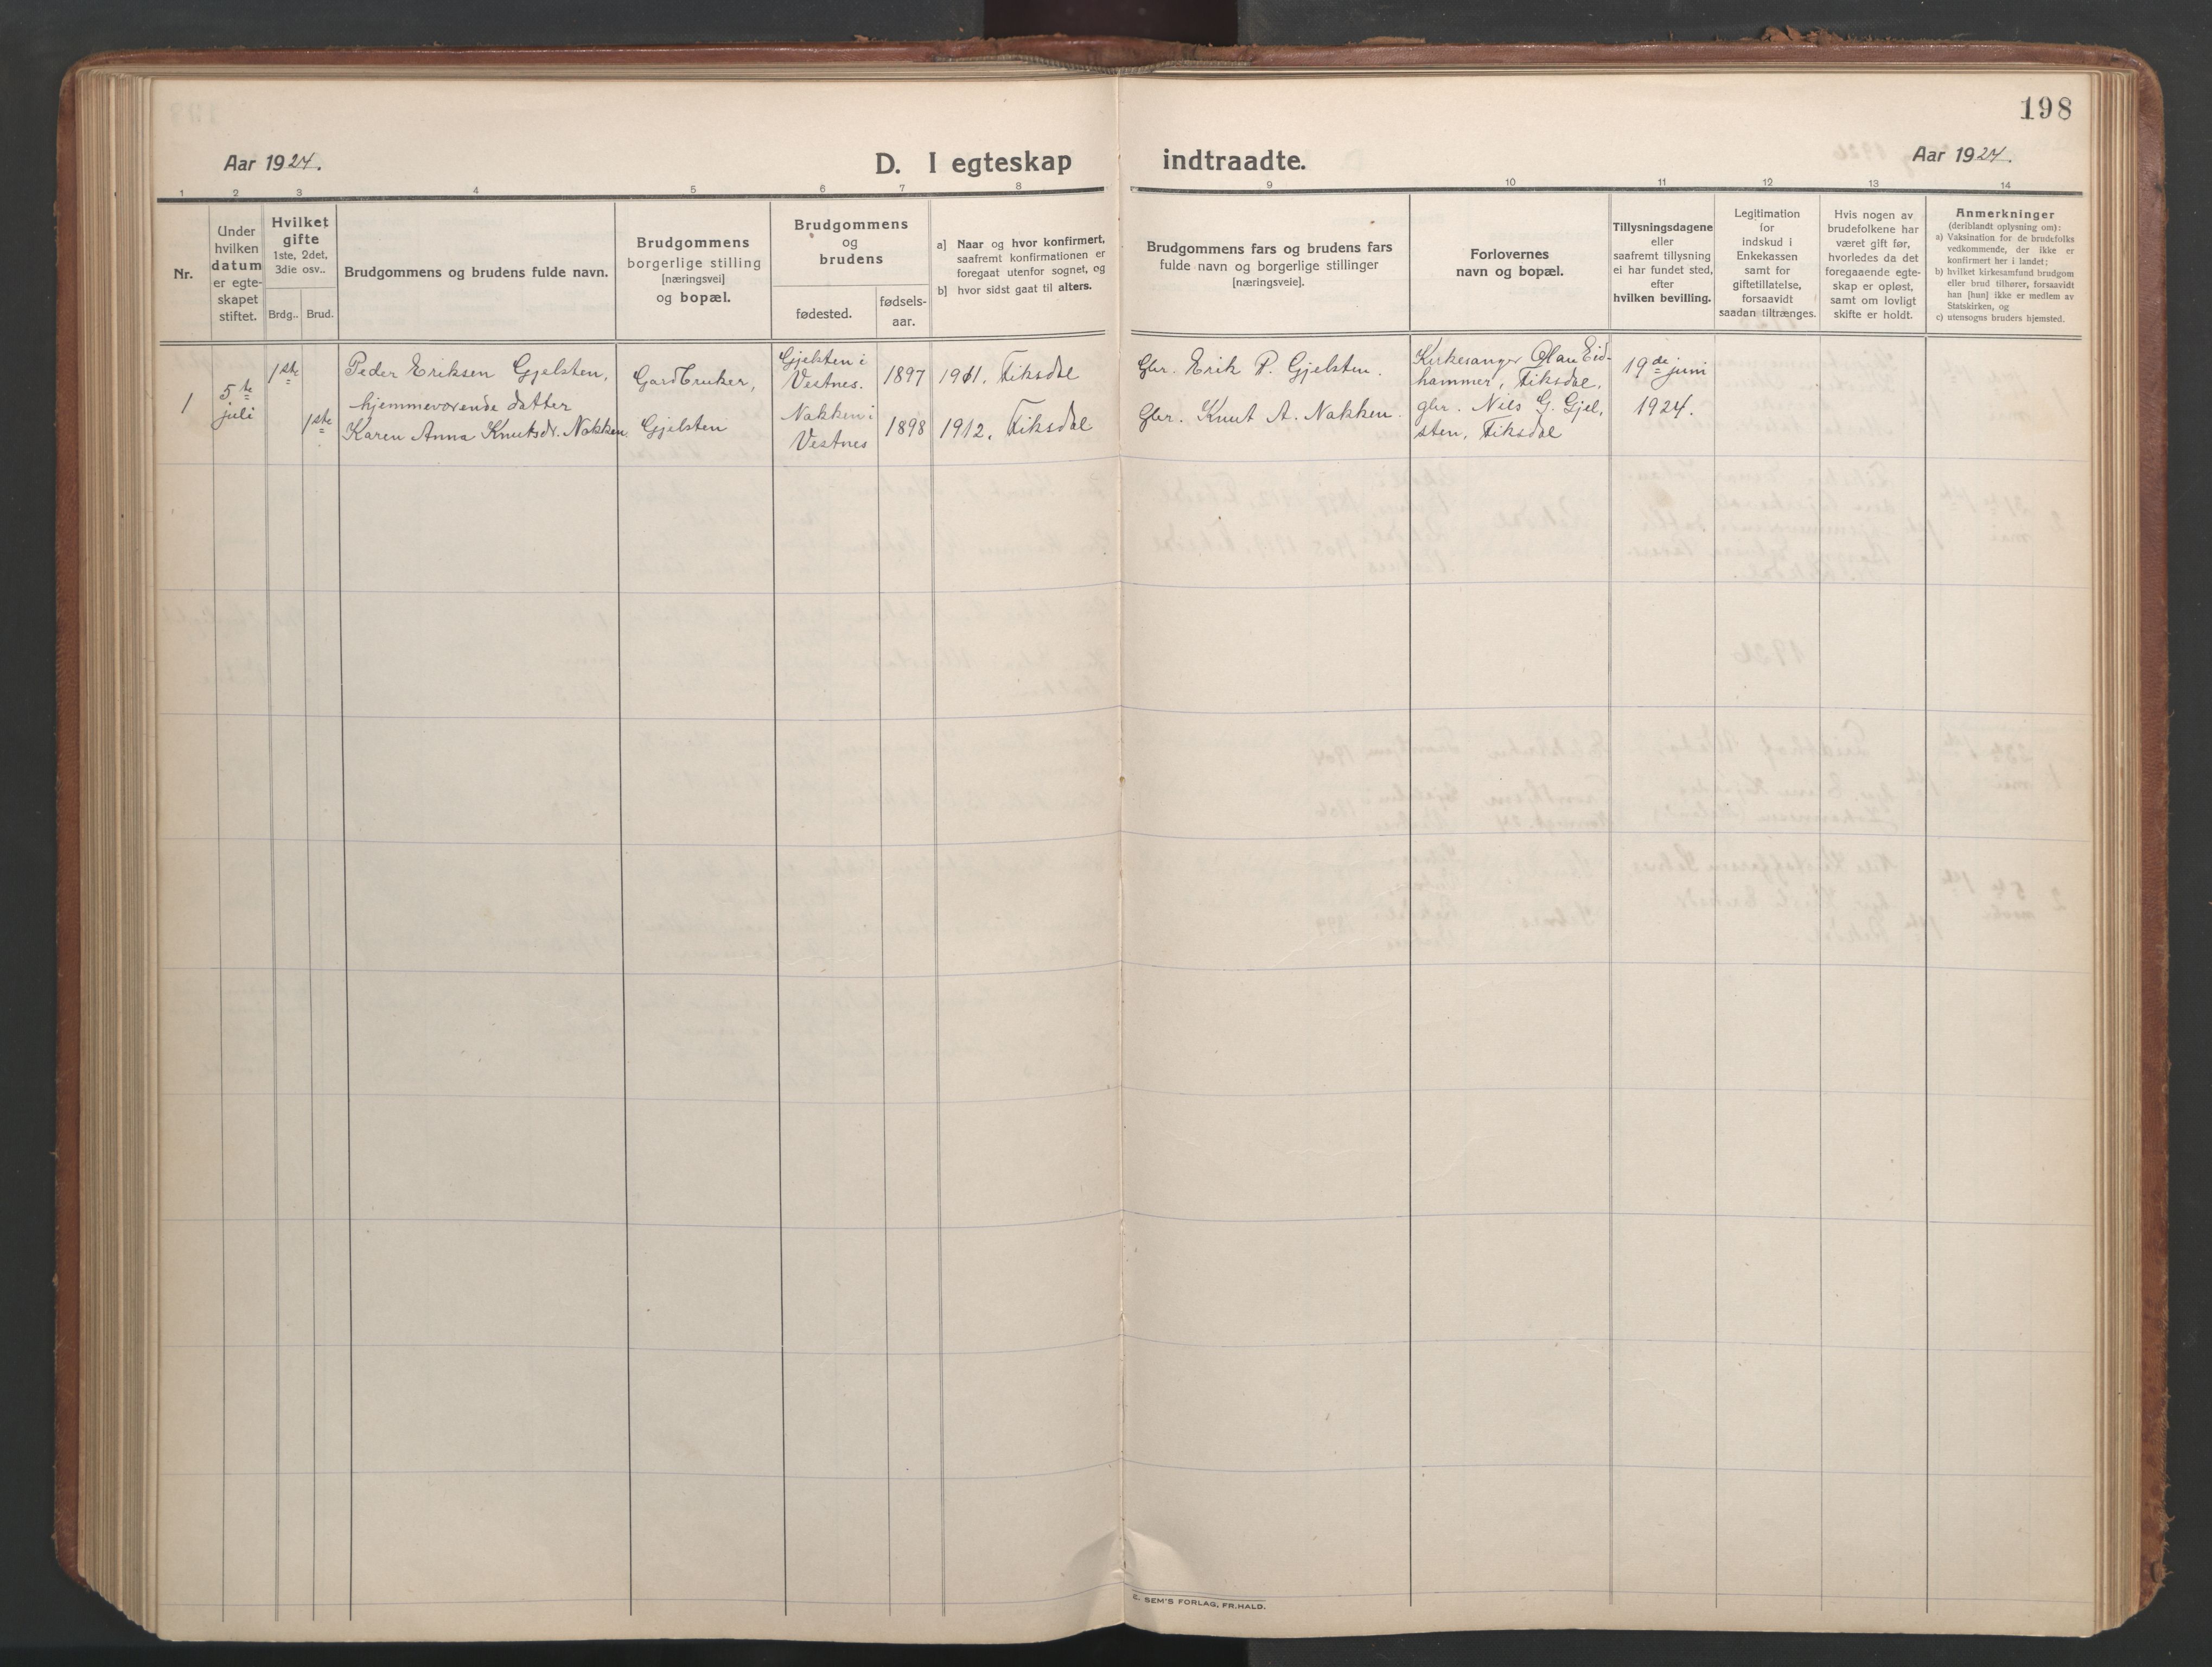 198
Aar 1924.
D. I egteskap indtraadte.
Aar 1924.
1 2 3 4 5 6 7 8 9 10 11 12 13 14
Nr.
Under
hvilken
datum
er egte-
skapet
stiftet.
Hvilket
gifte
1ste, 2det,
3die osv..
Brdg.. Brud.
Brudgommens og brudens fulde navn.
Brudgommens
borgerlige stilling
[næringsvei]
og bopæl.
Brudgommens
og
brudens
fødested.
fødsels-
aar.
a] Naar og hvor konfirmert,
saafremt konfirmationen er
foregaat utenfor sognet, og
b] hvor sidst gaat til alters.
Brudgommens fars og brudens fars
fulde navn og borgerlige stillinger
[næringsveie].
Forlovernes
navn og bopæl.
Tillysningsdagene
eller
saafremt tillysning
ei har fundet sted,
efter
hvilken bevilling.
Legitimation
for
indskud i
Enkekassen
samt for
giftetillatelse,
forsaavidt
saadan tiltrænges.
Hvis nogen av
brudefolkene har
været gift før,
hvorledes da det
foregaaende egte-
skap er opløst,
samt om lovligt
skifte er holdt.
Anmerkninger
(deriblandt oplysning om):
a) Vaksination for de brudefolks
vedkommende, der ikke er
konfirmert her i landet;
b) hvilket kirkesamfund brudgom
eller brud tilhører, forsaavidt
han [hun] ikke er medlem av
Statskirken, og
c) utensogns bruders hjemsted.
1
5te
juli
1ste
1ste
Peder Eriksen Gjelsten,
hjemmeværende datter
Karen Anna Knutsdr. Nakken
Gardbruker,
Gjelsten
Gjelsten i
Vestnes.
Nakken i
Vestnes
1897
1898
1911. Fiksdal
1912. Fiksdal
Gbr. Erik P. Gjelsten.
Gbr. Knut A. Nakken.
Kirkesanger Olau Eid-
hammer, Fiksdal,
gbr. Nils G. Gjel,
sten, Fiksdal
19de juni
1924.
C. SEM'S FORLAG, FR.HALD.